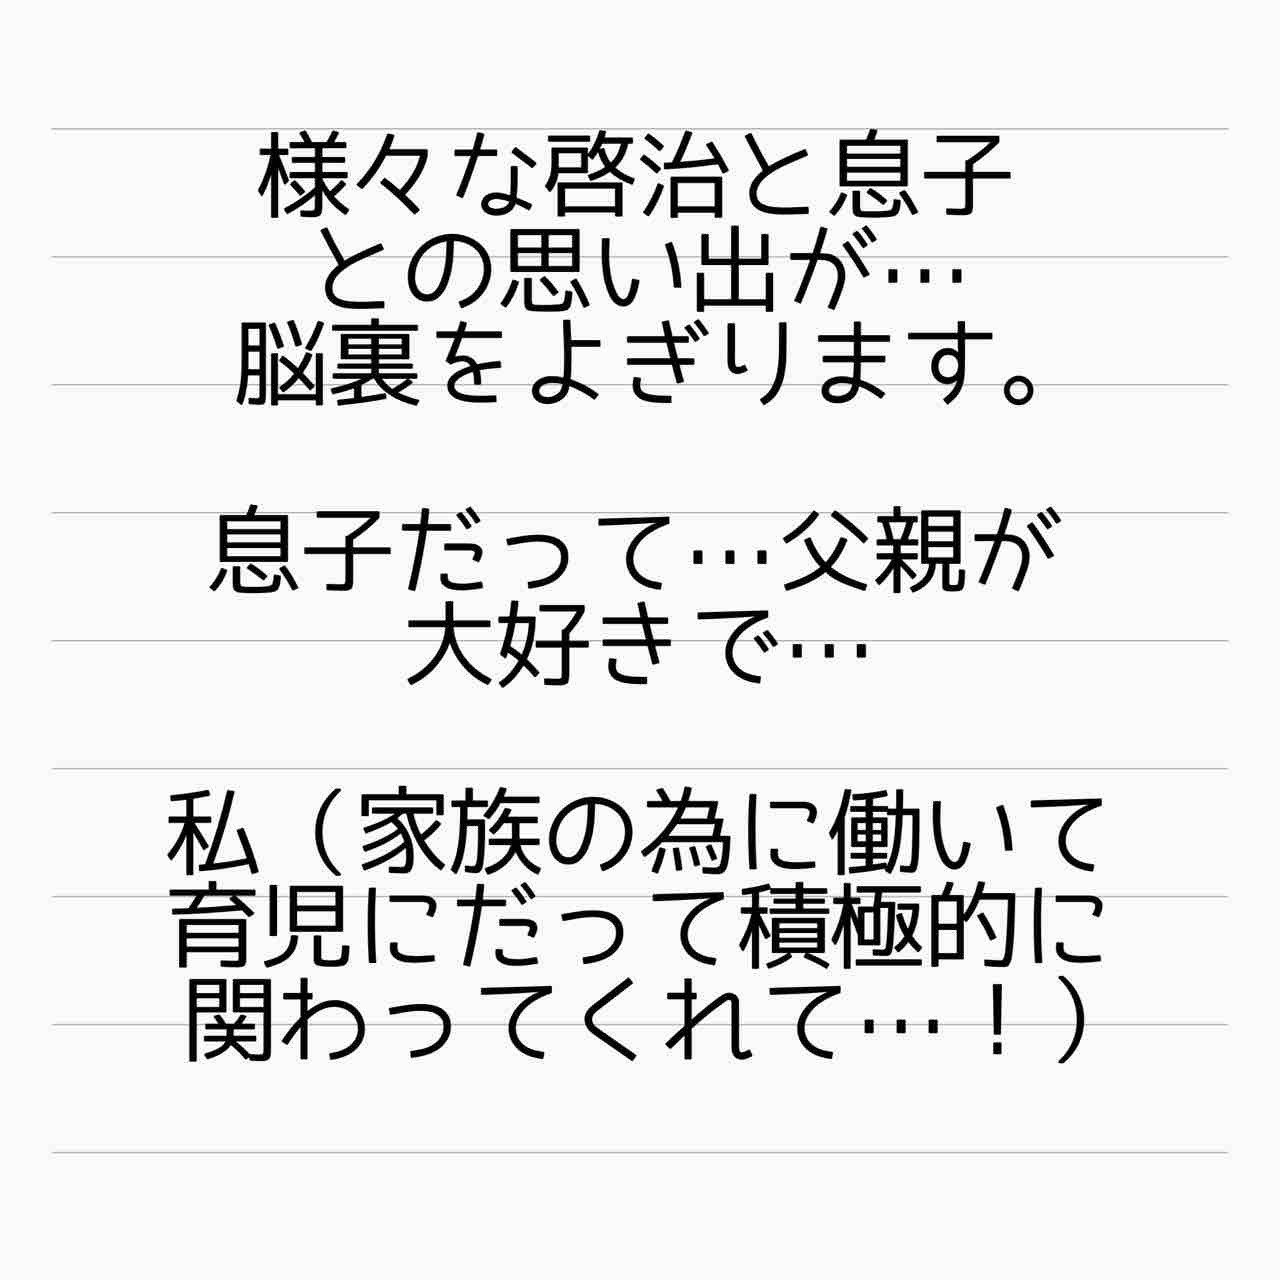 様々な啓治と息子
との思い出が…
脳裏をよぎります。
息子だって…父親が
大好きで…
私（家族の為に働いて
育児にだって積極的に
関わってくれて…！）